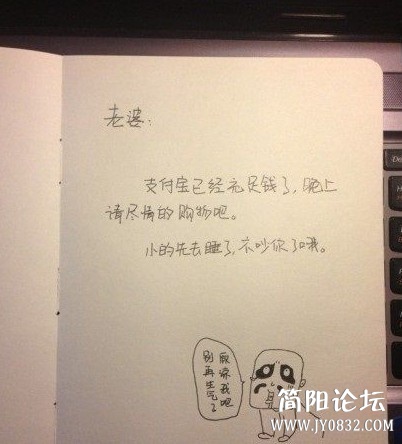 老婆：
支付宝已经充足钱了，晚上
请尽情的购物吧。
小的先去睡了，不吵你了哦。
原谅我吧
别再生气了
简阳论坛
www.JY0832.com